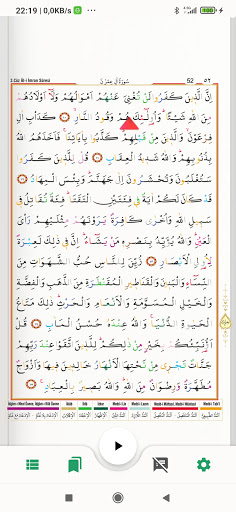 22:19 | 0,0KB/s
3.Cüz Âl-i İmran Sûresi سُورَةُ اٰلِ عِمْرٰنَ 52 ٥٢
اِنَّ الَّذِينَ كَفَرُوا لَنْ تُغْنِيَ عَنْهُمْ اَمْوَالُهُمْ وَلَٓا اَوْلَادُهُمْ
مِنَ اللّٰهِ شَيْـًٔا وَاُولٰٓئِكَ هُمْ وَقُودُ النَّارِ ١٠ كَدَأْبِ اٰلِ
فِرْعَوْنَ وَالَّذِينَ مِنْ قَبْلِهِمْ كَذَّبُوا بِاٰيَاتِنَا فَاَخَذَهُمُ اللّٰهُ
بِذُنُوبِهِمْ وَاللّٰهُ شَدِيدُ الْعِقَابِ ١١ قُلْ لِلَّذِينَ كَفَرُوا
سَتُغْلَبُونَ وَتُحْشَرُونَ اِلٰى جَهَنَّمَ وَبِئْسَ الْمِهَادُ ١٢
قَدْ كَانَ لَكُمْ اٰيَةٌ فِي فِئَتَيْنِ الْتَقَتَا فِئَةٌ تُقَاتِلُ فِي
سَبِيلِ اللّٰهِ وَاُخْرٰى كَافِرَةٌ يَرَوْنَهُمْ مِثْلَيْهِمْ رَأْيَ
الْعَيْنِ وَاللّٰهُ يُؤَيِّدُ بِنَصْرِهِ مَنْ يَشَٓاءُ اِنَّ فِي ذٰلِكَ لَعِبْرَةً
لِاُولِي الْاَبْصَارِ ١٣ زُيِّنَ لِلنَّاسِ حُبُّ الشَّهَوَاتِ مِنَ
النِّسَٓاءِ وَالْبَنِينَ وَالْقَنَاطِيرِ الْمُقَنْطَرَةِ مِنَ الذَّهَبِ وَالْفِضَّةِ
وَالْخَيْلِ الْمُسَوَّمَةِ وَالْاَنْعَامِ وَالْحَرْثِ ذٰلِكَ مَتَاعُ
الْحَيٰوةِ الدُّنْيَا وَاللّٰهُ عِنْدَهُ حُسْنُ الْمَاٰبِ ١٤ قُلْ
اَؤُنَبِّئُكُمْ بِخَيْرٍ مِنْ ذٰلِكُمْ لِلَّذِينَ اتَّقَوْا عِنْدَ رَبِّهِمْ
جَنَّاتٌ تَجْرِي مِنْ تَحْتِهَا الْاَنْهَارُ خَالِدِينَ فِيهَا وَاَزْوَاجٌ
مُطَهَّرَةٌ وَرِضْوَانٌ مِنَ اللّٰهِ وَاللّٰهُ بَصِيرٌ بِالْعِبَادِ ١٥